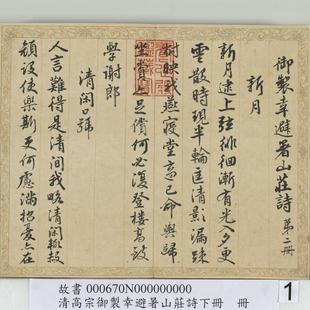 御製幸避暑山莊詩 第二冊
新月
新月遠上弦徘徊漸有光入夕更
雲散時現半輪匡清影漏疎
樹映我燕寢堂高已命輿歸
坐賞亦足償何必復登樓高致
學謝郎
清閑號
人言難得是清閒我略清閑
頻設使樂斯更何慮滿招憂亦在
故書 000670N000000000
清高宗御製幸避暑山莊詩下冊 冊
1